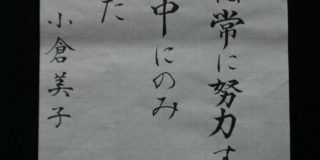 常に努力す
中にのみ
た
小倉美子